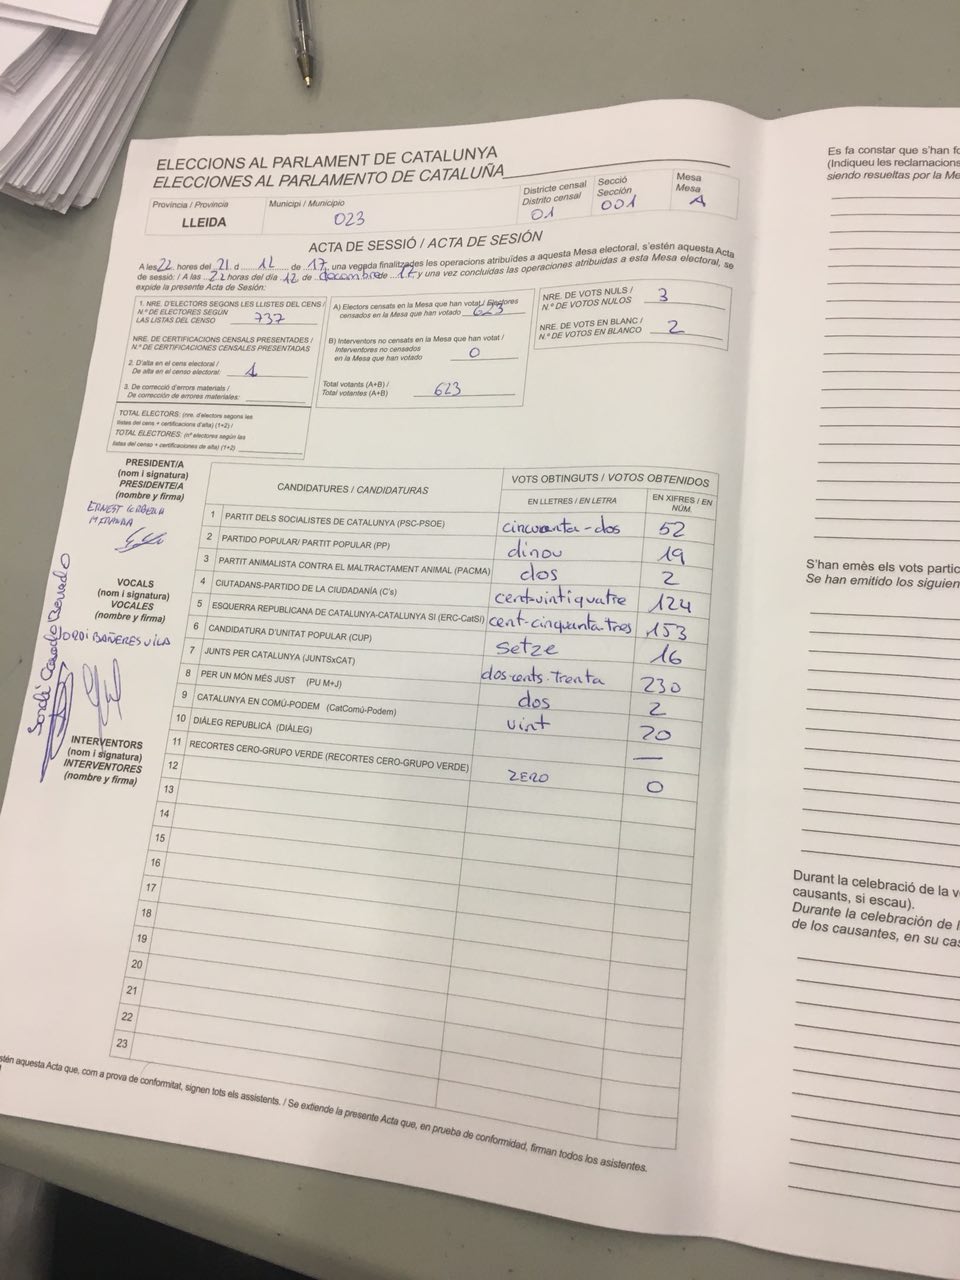 ELECCIONS AL PARLAMENT DE CATALUNYA
ELECCIONES AL PARLAMENTO DE CATALUÑA
Província / Provincia
LLEIDA
Municipi / Municipio
023
Districte censal
Distrito censal
01
Secció
Sección
001
Mesa
Mesa
A
ACTA DE SESSIÓ / ACTA DE SESIÓN
A les 22 hores del 21 d 12 de 17, una vegada finalitzades les operacions atribuïdes a aquesta Mesa electoral, s'estén aquesta Acta
de sessió: / A las 22 horas del día 12 de decembre de 17 y una vez concluidas las operaciones atribuidas a esta Mesa electoral, se
expide la presente Acta de Sesión:
1. NRE. D'ELECTORS SEGONS LES LLISTES DEL CENS /
N.º DE ELECTORES SEGÚN
LAS LISTAS DEL CENSO 737
NRE. DE CERTIFICACIONS CENSALS PRESENTADES /
N.º DE CERTIFICACIONES CENSALES PRESENTADAS
2. D'alta en el cens electoral /
De alta en el censo electoral: 1
3. De correcció d'errors materials /
De corrección de errores materiales:
TOTAL ELECTORS: (nre. d'electors segons les
llistes del cens + certificacions d'alta) (1+2) /
TOTAL ELECTORES: (nº electores según las
listas del censo + certificaciones de alta) (1+2)
A) Electors censats en la Mesa que han votat / Electores
censados en la Mesa que han votado 623
B) Interventors no censats en la Mesa que han votat /
Interventores no censados
en la Mesa que han votado 0
Total votants (A+B) /
Total votantes (A+B) 623
NRE. DE VOTS NULS /
N.º DE VOTOS NULOS 3
NRE. DE VOTS EN BLANC /
N.º DE VOTOS EN BLANCO 2
PRESIDENT/A
(nom i signatura)
PRESIDENTE/A
(nombre y firma)
ERNEST
VOCALS
(nom i signatura)
VOCALES
(nombre y firma)
JORDI BAÑERES VILA
INTERVENTORS
(nom i signatura)
INTERVENTORES
(nombre y firma)
CANDIDATURES / CANDIDATURAS
VOTS OBTINGUTS / VOTOS OBTENIDOS
EN LLETRES / EN LETRA
EN XIFRES / EN NÚM.
1 PARTIT DELS SOCIALISTES DE CATALUNYA (PSC-PSOE) cincuanta-dos 52
2 PARTIDO POPULAR/ PARTIT POPULAR (PP) dinou 19
3 PARTIT ANIMALISTA CONTRA EL MALTRACTAMENT ANIMAL (PACMA) dos 2
4 CIUTADANS-PARTIDO DE LA CIUDADANÍA (C's) cent-vintiquatre 124
5 ESQUERRA REPUBLICANA DE CATALUNYA-CATALUNYA SÍ (ERC-CatSí) cent-cinquanta-tres 153
6 CANDIDATURA D'UNITAT POPULAR (CUP) setze 16
7 JUNTS PER CATALUNYA (JUNTSxCAT) dos-cents-trenta 230
8 PER UN MÓN MÉS JUST (PU M+J) dos 2
9 CATALUNYA EN COMÚ-PODEM (CatComú-Podem) vint 20
10 DIÀLEG REPUBLICÀ (DIÀLEG) —
11 RECORTES CERO-GRUPO VERDE (RECORTES CERO-GRUPO VERDE) ZERO 0
12
13
14
15
16
17
18
19
20
21
22
23
stén aquesta Acta que, com a prova de conformitat, signen tots els assistents. / Se extiende la presente Acta que, en prueba de conformidad, firman todos los asistentes.
Es fa constar que s'han fo
(Indiqueu les reclamacions
siendo resueltas por la Me
S'han emès els vots partic
Se han emitido los siguien
Durant la celebració de la v
causants, si escau).
Durante la celebración de l
de los causantes, en su cas